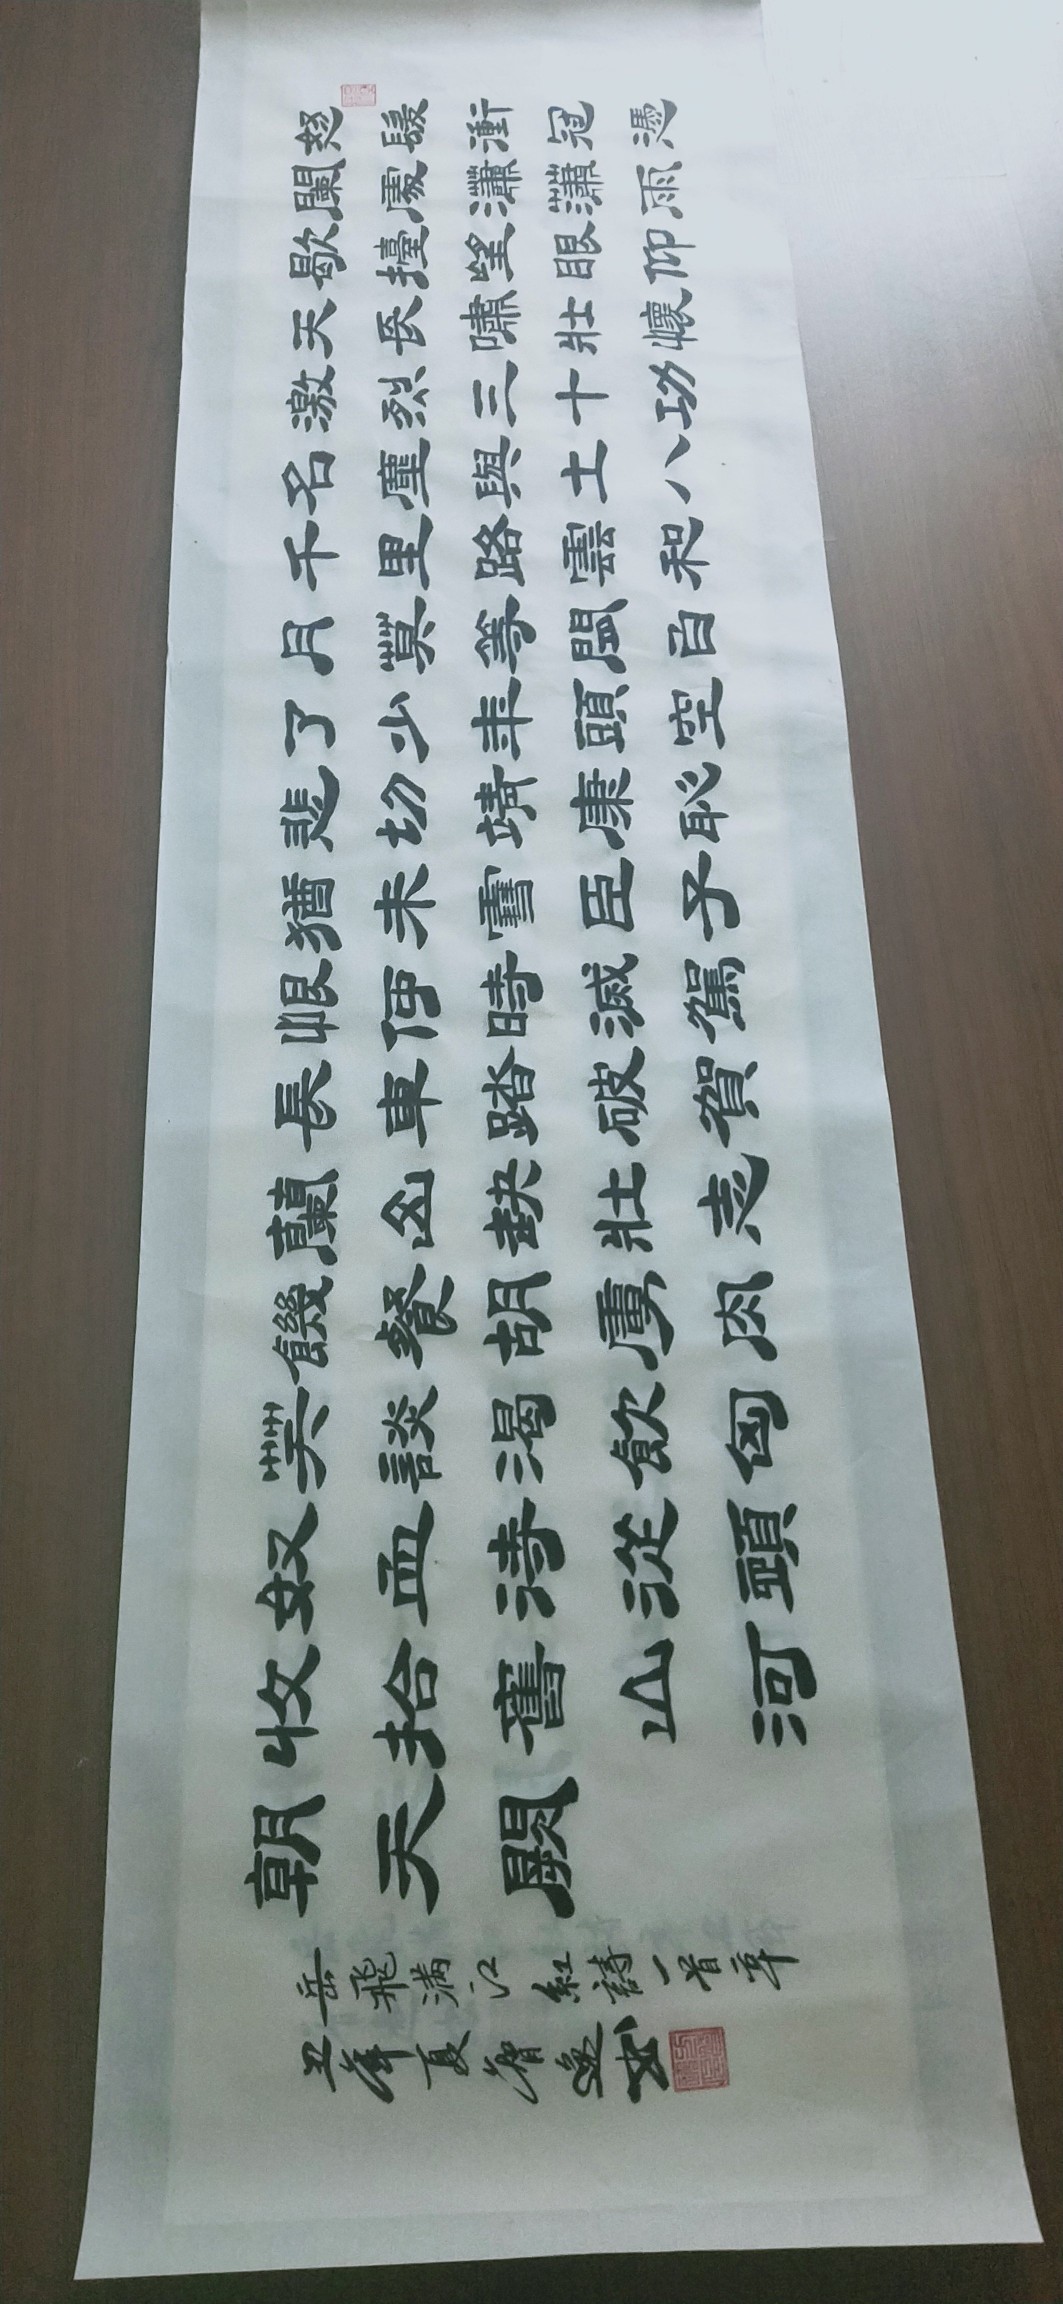 怒髮衝冠憑
闌處瀟瀟雨
歇擡望眼仰
天長嘯壯懷
激烈三十功
名塵與土八
千里路雲和
月莫等閒白
了少年頭空
悲切靖康恥
猶未雪臣子
恨何時滅駕
長車踏破賀
蘭山缺壯志
饑餐胡虜肉
笑談渴飲匈
奴血待從頭
收拾舊山河
朝天闕
岳飛满江紅詩一首辛
丑年夏智书